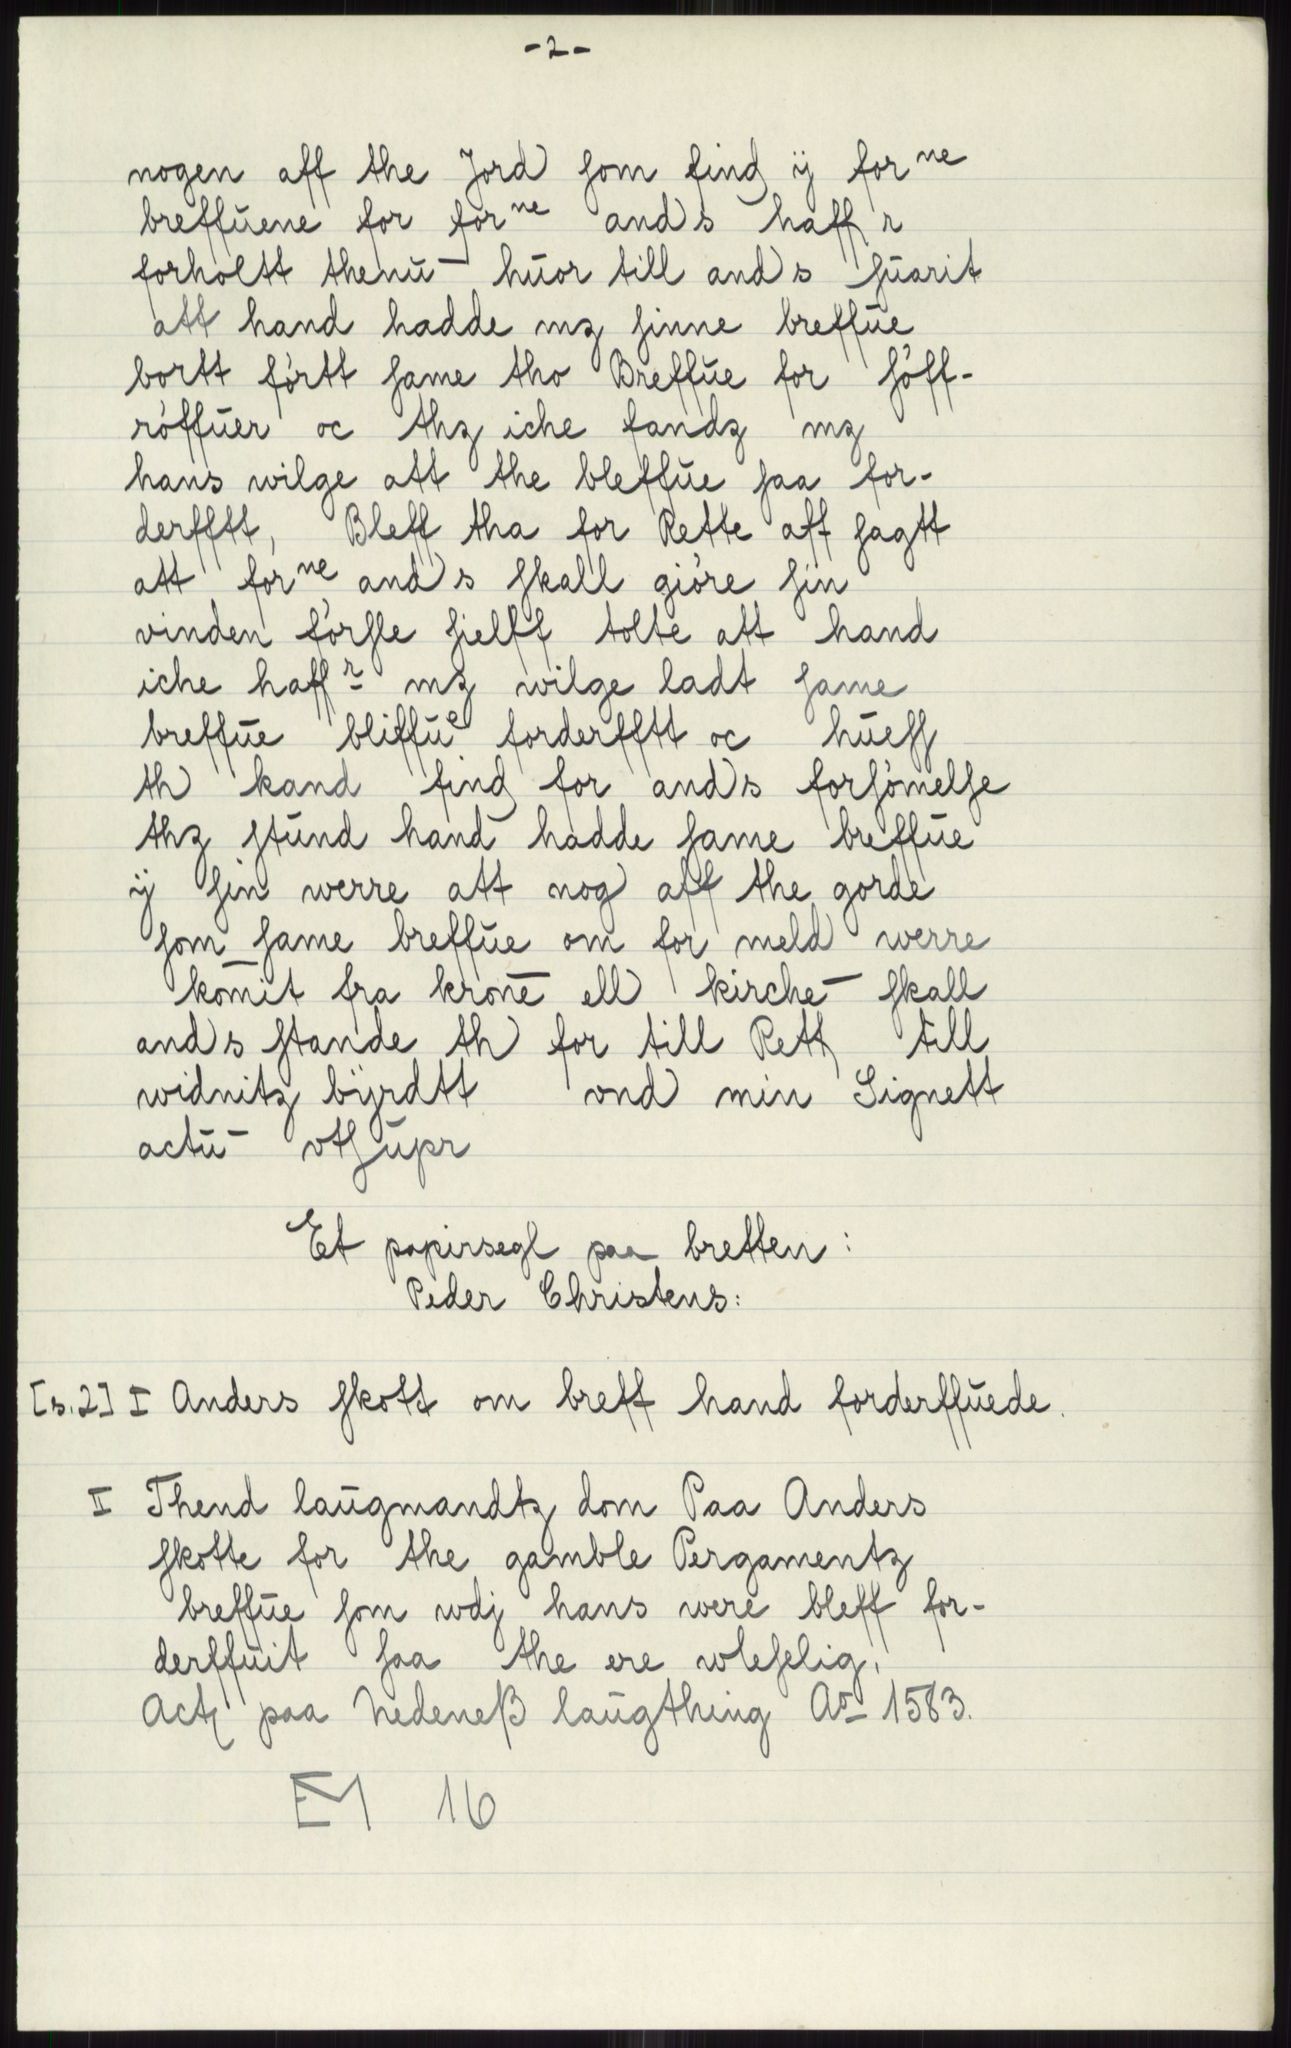 -2-
nogen aff the Jord som find ÿ forne
breffuene for forne ands haffr
forholtt thenū huor till ands suarit
att hand hadde mz sinne breffue
bortt førtt same tho Breffue for søff-
røffuer oc thz iche fandz mz
hans wilge att the bleffue saa for-
derfftt, Bleff tha for Rette aff sagtt
att forne ands skall giøre sin
vinden førsle sielff tolte att hand
iche haffr mz wilge ladt same
breffue bliffue forderfftt oc huess
th kand find for ands forsømelse
thz stund hand hadde same breffue
ÿ sin werre att nog aff the gorde
som same breffue om for meld werre
komit fra krone ell kirche skall
ands stande th for till Rett till
widnitz bÿrdtt vnd min Signett
actū vtsupr
Et papirsegl paa bretten:
Peder Christens:
[s.2] I Anders skott om breff hand forderffuede.
II Thend laugmandtz dom Paa Anders
skotte for the gamble Pergamentz
breffue som wdj hans were bleff for-
derffuit saa the ere wleselig.
Act paa Nedeneß laugthing Ao 1583.
EM 16